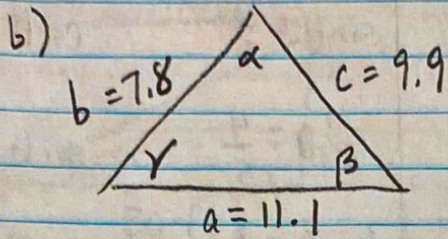 b)
α
b = 7.8
c = 9.9
γ
β
a = 11.1